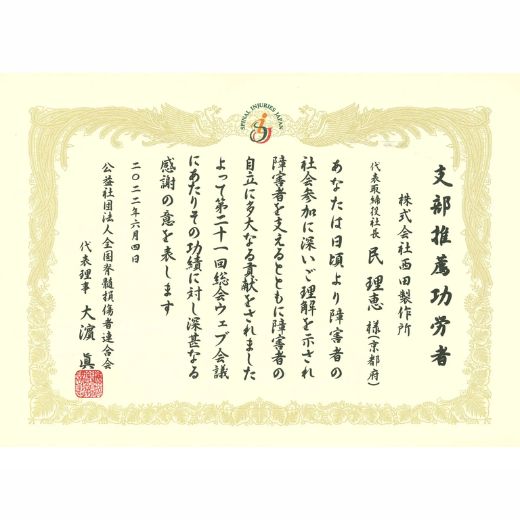 SPINAL INJURIES JAPAN
支部推薦功労者
株式会社西田製作所
代表取締役社長 民 理恵 様(京都府)
あなたは日頃より障害者の
社会参加に深いご理解を示され
障害者を支えるとともに障害者の
自立に多大なる貢献をされました
よって第二十一回総会ウェブ会議
にあたりその功績に対し深甚なる
感謝の意を表します
二〇二二年六月四日
公益社団法人全国脊髄損傷者連合会
代表理事 大濱 眞